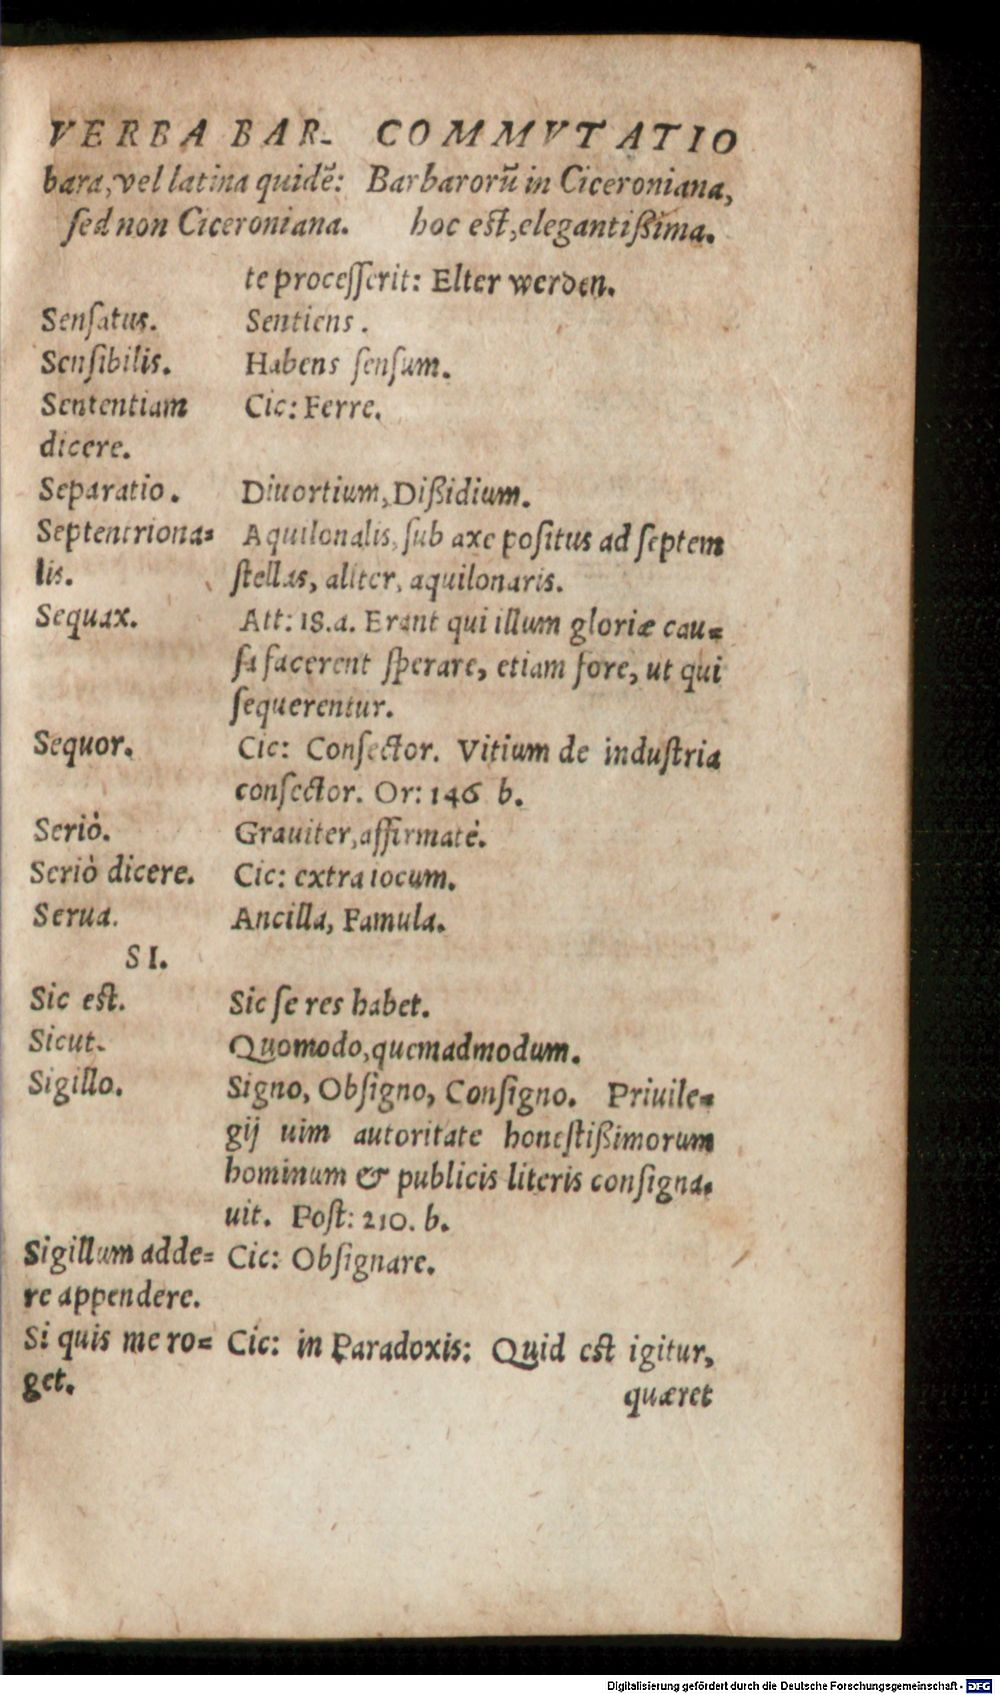 VERBA BAR- COMMVTATIO
bara, vel latina quidē: Barbarorū in Ciceroniana,
sed non Ciceroniana. hoc est, elegantißima.
te processerit: Elter werden.
Sensatus. Sentiens.
Sensibilis. Habens sensum.
Sententiam Cic: Ferre.
dicere.
Separatio. Diuortium, Dißidium.
Septentriona= Aquilonalis, sub axe positus ad septem
lis. stellas, aliter, aquilonaris.
Sequax. Att: 18.a. Erant qui illum gloriæ cau=
sa facerent sperare, etiam fore, ut qui
sequerentur.
Sequor. Cic: Consector. Vitium de industria
consector. Or: 146 b.
Seriò. Grauiter, affirmatè.
Seriò dicere. Cic: extra iocum.
Serua. Ancilla, Famula.
SI.
Sic est. Sic se res habet.
Sicut. Quomodo, quemadmodum.
Sigillo. Signo, Obsigno, Consigno. Priuile=
gij uim autoritate honestißimorum
hominum & publicis literis consigna=
uit. Post: 210. b.
Sigillum adde= Cic: Obsignare.
re appendere.
Si quis me ro= Cic: in Paradoxis: Quid est igitur,
get. quæret
Digitalisierung gefördert durch die Deutsche Forschungsgemeinschaft - DFG